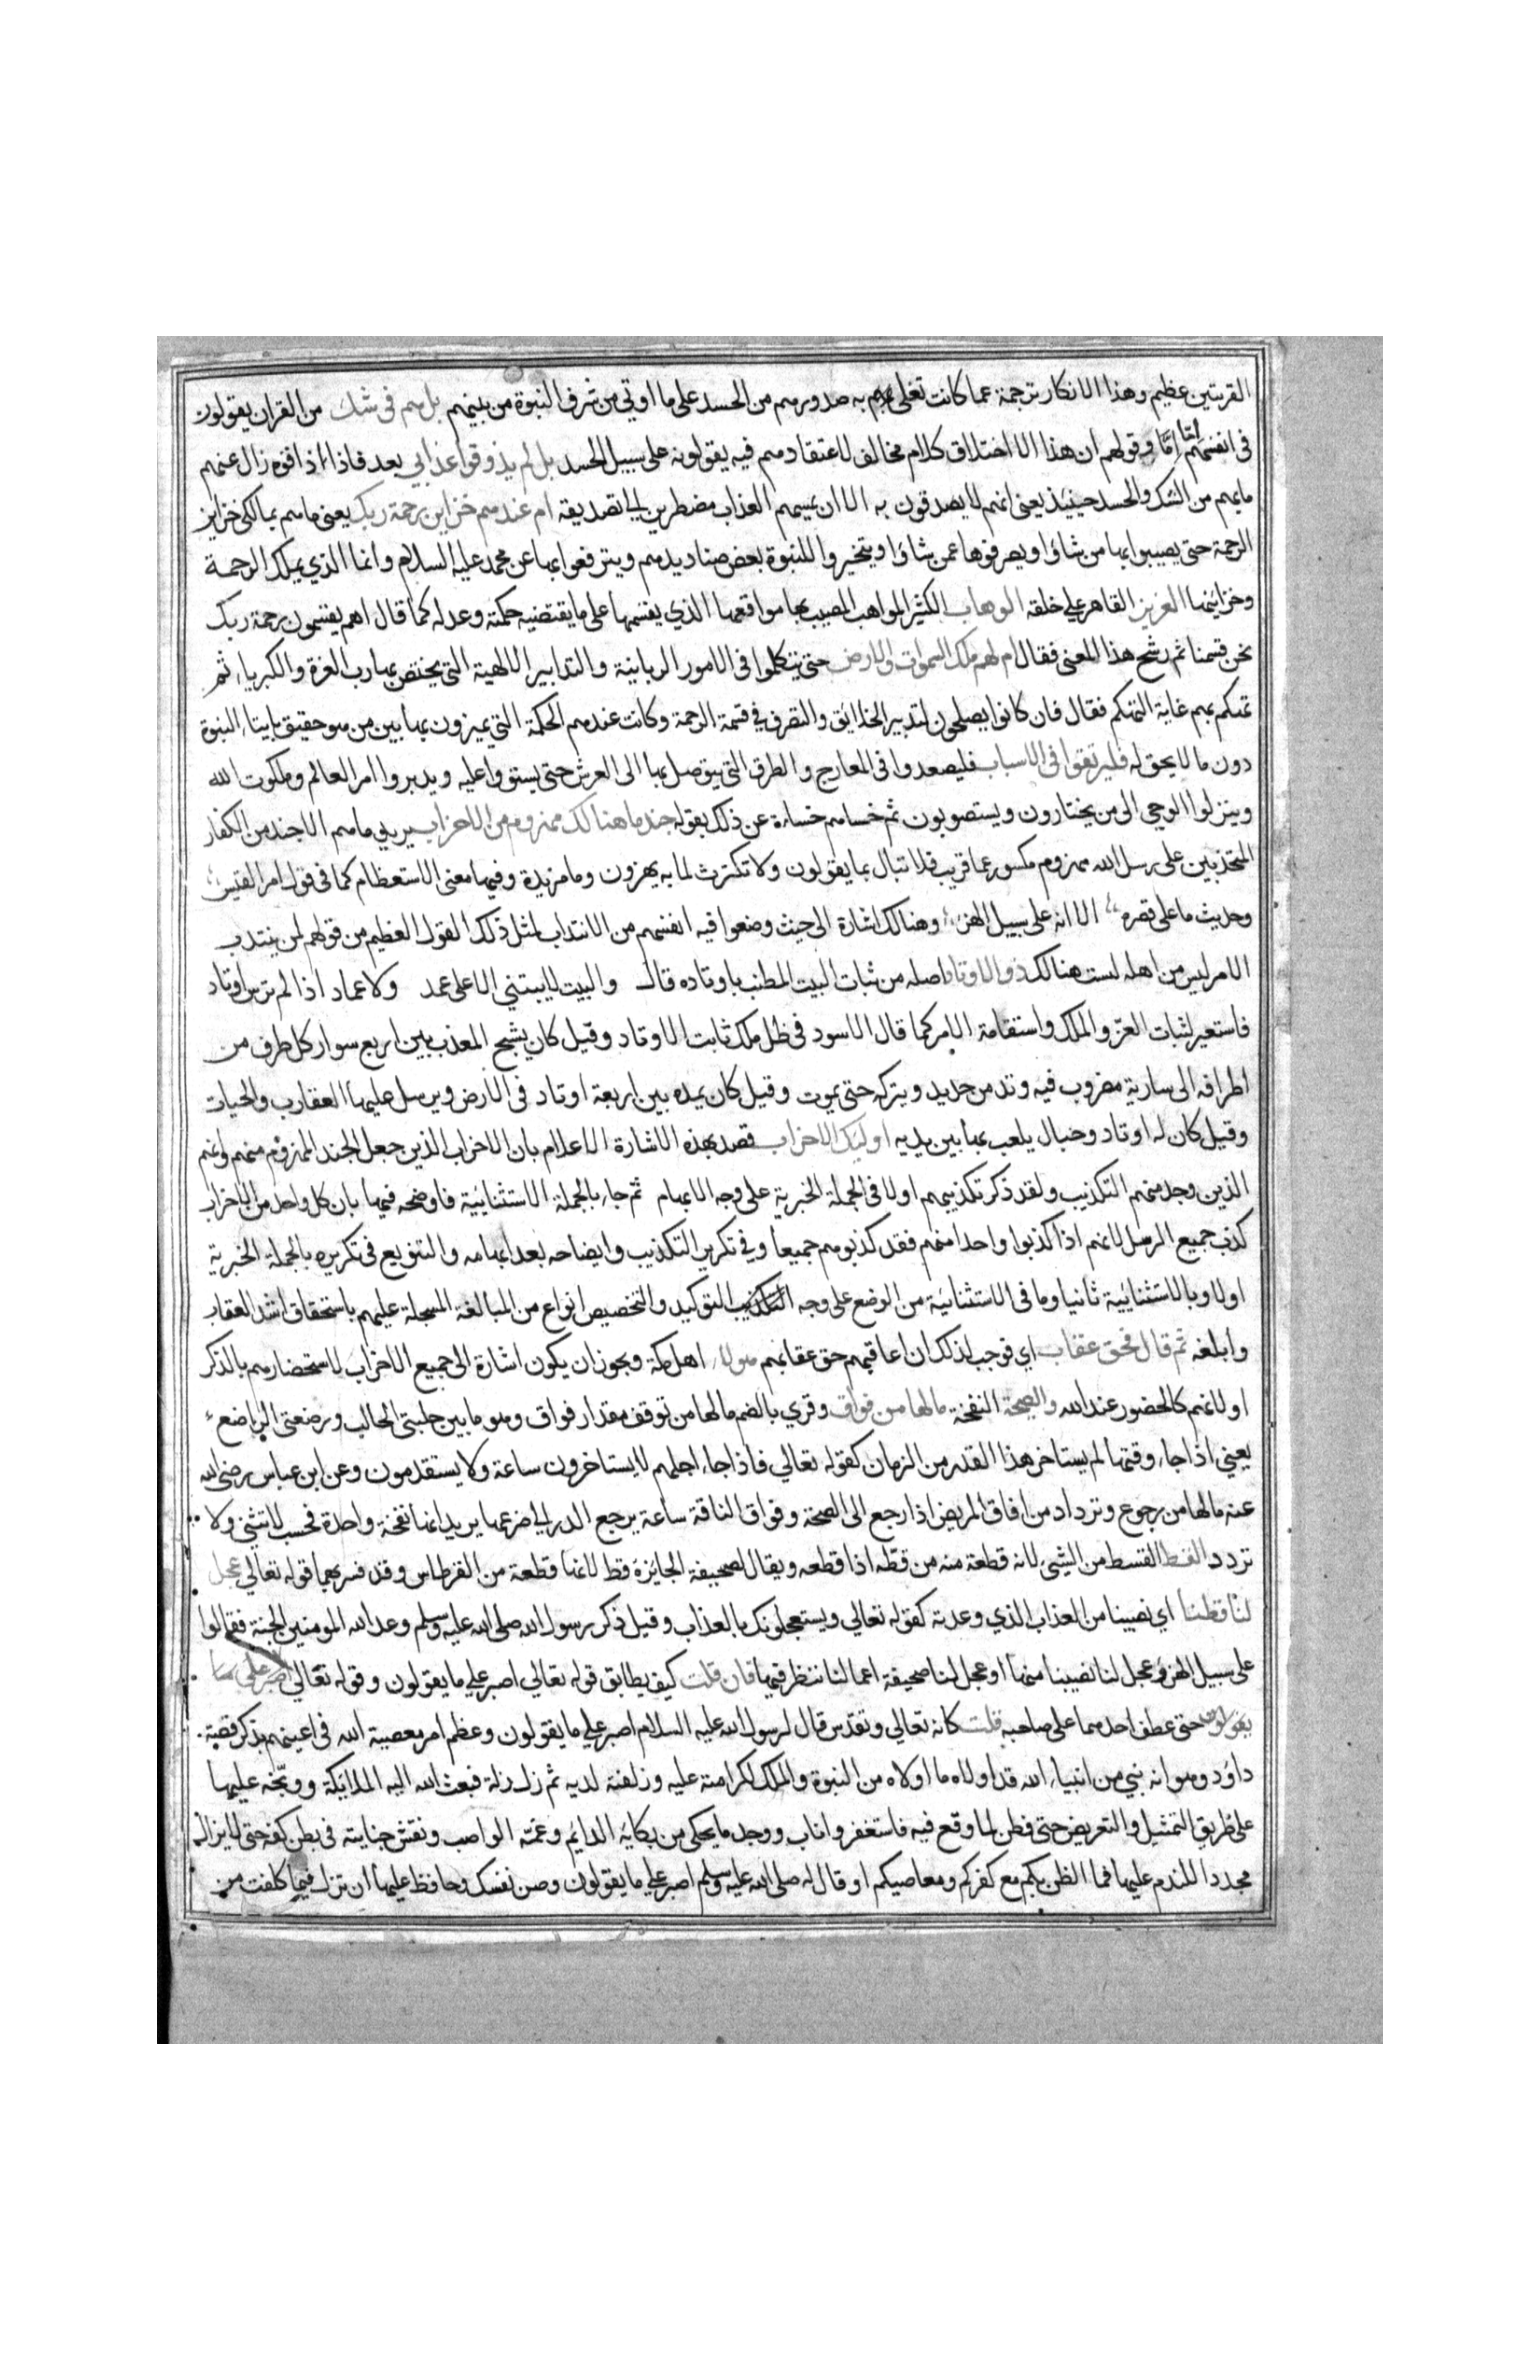 القريتين عظيم وهذا الانكار ترجمة عما كانت تغلي به صدورهم من الحسد على ما اوتي من شرف النبوة من بينهم بل هم في شك من القران يقولون
في انفسهم اما واما وقولهم ان هذا الا اختلاق كلام مخالف لاعتقادهم فيه يقولونه على سبيل الحسد بل لم يذوقوا عذابي بعد فاذا ذاقوه زال عنهم
ما بهم من الشك والحسد حينيذ يعني انهم لا يصدقون به الا ان يمسهم العذاب مضطرين الى تصديقه ام عندهم خزاين رحمة ربك يعني ما هم بمالكي خزاين
الرحمة حتى يصيبوا بها من شاؤا ويصرفوها عمن شاؤا ويتخيروا للنبوة بعض صناديدهم ويترفعوا بها عن محمد عليه السلام وانما الذي يملك الرحمة
وخزاينها العزيز القاهر على خلقه الوهاب الكثير المواهب المصيب بها مواقعها الذي يقسمها على ما يقتضيه حكمته وعدله كما قال اهم يقسمون رحمة ربك
نحن قسمنا ثم رشح هذا المعنى فقال ام لهم ملك السموات والارض حتى يتكلموا في الامور الربانية والتدابير الالهية التي يختص بها رب العزة والكبرياء ثم
تهكم بهم غاية التهكم فقال فان كانوا يصلحون لتدبير الخلائق والتصرف في قسمة الرحمة وكانت عندهم الحكمة التي يميزون بها بين من هو حقيق بايتاء النبوة
دون ما لا يحق له فليرتقوا في الاسباب فليصعدوا في المعارج والطرق التي يتوصل بها الى العرش حتى يستووا عليه ويدبروا امر العالم وملكوت الله
وينزلوا الوحي الى من يختارون ويستصوبون ثم خساهم خساءة عن ذلك بقوله جند ما هنالك مهزوم من الاحزاب يريد ما هم الا جند من الكفار
المتحزبين على رسل الله مهزوم مكسور عما قريب فلا تبال بما يقولون ولا تكترث لما به يهزون وما مزيدة وفيها معنى الاستعظام كما في قول امرء القيس
وحديث ما على قصره الا انه على سبيل الهزء وهنالك اشارة الى حيث وضعوا فيه انفسهم من الانتداب لمثل ذلك القول العظيم من قولهم لمن ينتدب
الامر ليس من اهله لست هنالك ذو الاوتاد اصله من ثبات البيت المطنب باوتاده قال والبيت لا يبتني الا على عمد ولا عماد اذا لم ترس اوتاد
فاستعير لثبات العز والملك واستقامة الامر كما قال الاسود في ظل ملك ثابت الاوتاد وقيل كان يشبح المعذب بين اربع سوار كل طرف من
اطرافه الى سارية مضروب فيه وتد من حديد ويتركه حتى يموت وقيل كان يمده بين اربعة اوتاد في الارض ويرسل عليها العقارب والحيات
وقيل كان له اوتاد وحبال يلعب بها بين يديه اوليك الاحزاب قصد بهذه الاشارة الاعلام بان الاحزاب الذين جعل الجند المهزوم منهم وانهم
الذين وجد منهم التكذيب ولقد ذكر تكذيبهم اولا في الجملة الخبرية على وجه الابهام ثم جاء بالجملة الاستثنائية فاوضحه فيها بان كل واحد من الاحزاب
كذب جميع الرسل لانهم اذا كذبوا واحدا منهم فقد كذبوهم جميعا وفي تكرير التكذيب وايضاحه بعد ابهامه والتنويع في تكريره بالجملة الخبرية
اولا وبالاستثنائية ثانيا وما في الاستثنائية من الوضع على وجه التوكيد والتخصيص انواع من المبالغة المسجلة عليهم باستحقاق اشد العقاب
وأبلغه ثم قال فحق عقاب اي فوجب لذلك ان اعاقبهم حق عقابهم هولاء اهل مكة ويجوز ان يكون اشارة الى جميع الاحزاب لاستحضارهم بالذكر
او لانهم كالحضور عند الله والصيحة النفخة ما لها من فواق وقري بالضم ما لها من توقف مقدار فواق وهو ما بين حلبتي الحالب ورضعتي الراضع
يعني اذا جاء وقتها لم يستاخر هذا القدر من الزمان كقوله تعالي فاذا جاء اجلهم لا يستاخرون ساعة ولا يستقدمون وعن ابن عباس رضي الله
عنه ما لها من رجوع وترداد من افاق المريض اذا رجع الى الصحة وفواق الناقة ساعة يرجع الدر الى ضرعها يريد انها نفخة واحدة فحسب لا تثني ولا
تردد القط القسط من الشيء لانه قطعة منه من قطه اذا قطعه ويقال لصحيفة الجايزة قط لانها قطعة من القرطاس وقد فسر بهما قوله تعالي عجل
لنا قطنا اي نصيبنا من العذاب الذي وعدته كقوله تعالي ويستعجلونك بالعذاب وقيل ذكر رسول الله صلى الله عليه وسلم وعد الله المومنين الجنة فقالوا
على سبيل الهزؤ عجل لنا نصيبنا منها او عجل لنا صحيفة اعمالنا ننظر فيها فان قلت كيف يطابق قوله تعالي اصبر على ما يقولون وقوله تعالي اصبر على ما
يقولون حتى عطف احدهما على صاحبه قلت كانه تعالي وتقدس قال لرسول الله عليه السلام اصبر على ما يقولون وعظم امر معصية الله في اعينهم بذكر قصة
داؤد وهو انه نبي من انبياء الله قد اولاه ما اولاه من النبوة والملك لكرامته عليه وزلفته لديه ثم زل زلة فبعث الله اليه الملايكة ووبخه عليها
على طريق التمثيل والتعريض حتى فطن لما وقع فيه فاستغفر واناب ووجد ما يحكى من بكايه الدايم وغمه الواصب ونقش جنايته في بطن كفه حتى لا يزال
مجددا للندم عليها فما الظن بكم مع كفركم ومعاصيكم او قال له صلى الله عليه وسلم اصبر على ما يقولون وصن نفسك وحافظ عليها ان تزل فيما كلفت من